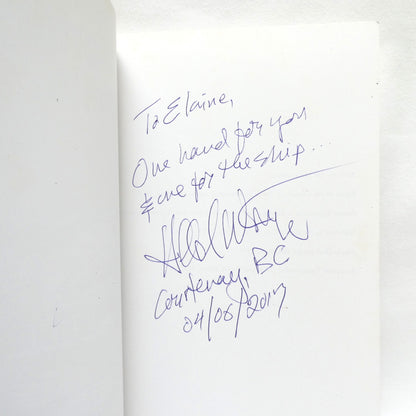 To Elaine,
One hand for you
& one for the ship...
Courtenay, BC
04/06/2017